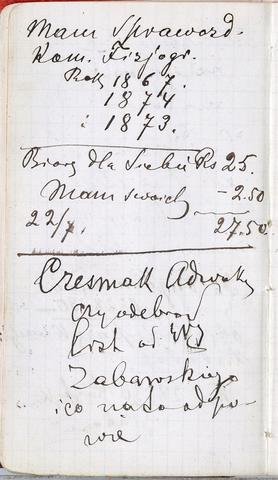 Mam Spraword.
Kom. Fizjogr.
Rok 1867.
1874
i 1873.
Biorę dla Siebie Rs 25.
Mam swoich - 2.50
22/7. 27.50
Czesmak Adwokat
czy odebrał
list od
Zabawskiego
i co na to odpo-
wie